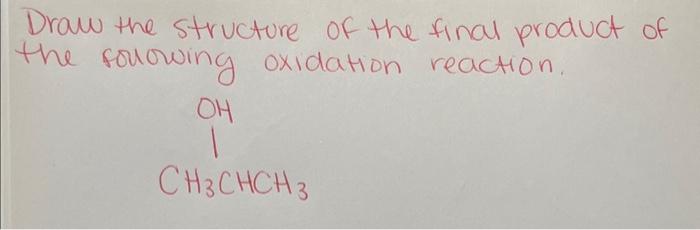 Draw the structure of the final product of
the following oxidation reaction.
OH
|
CH3CHCH3